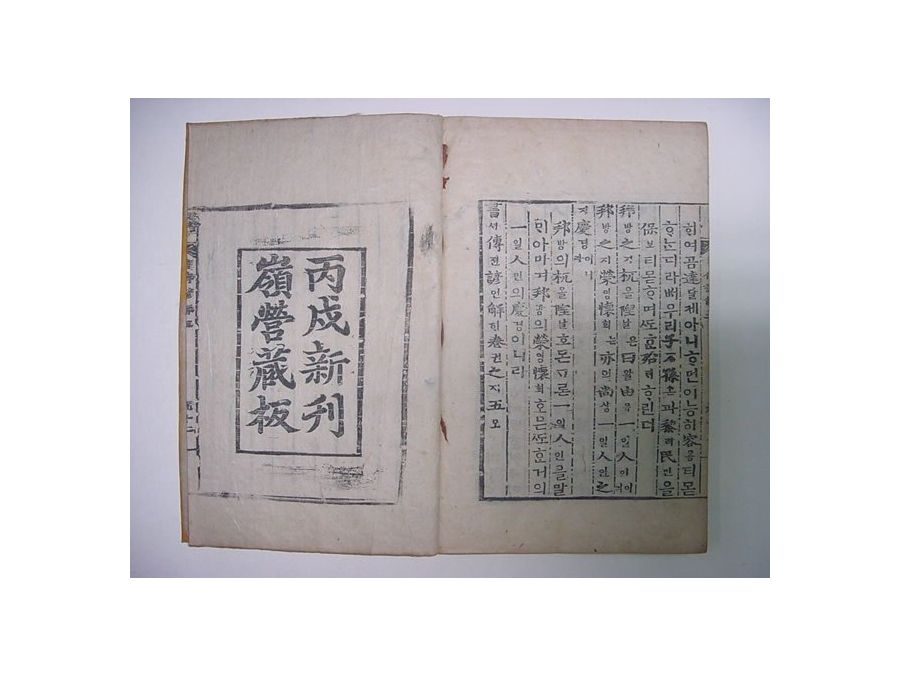 히여곰達달제아니ᄒᆞ면이능히容용티몯
ᄒᆞᄂᆞᆫ디라ᄡᅥ우리子ᄌᆞ孫손과黎려民민을
保보티몯ᄒᆞ며ᄯᅩᄒᆞᆫ殆ᄐᆡᄒᆞ린뎌
邦방之지杌올隉날은曰왈由유一일人인이며
邦방之지榮영懷회ᄂᆞᆫ亦역尙샹一일人인之
지慶경이니라
邦방의杌올隉날호ᄆᆞᆫᄀᆞᆯ온一일人인을말
ᄆᆡ아미며邦방의榮영懷회호ᄆᆞᆫᄯᅩᄒᆞᆫ거의
一일人인의慶경이니라
書셔傳젼諺언解ᄒᆡ卷권之지五오
丙戌新刊
嶺營藏板